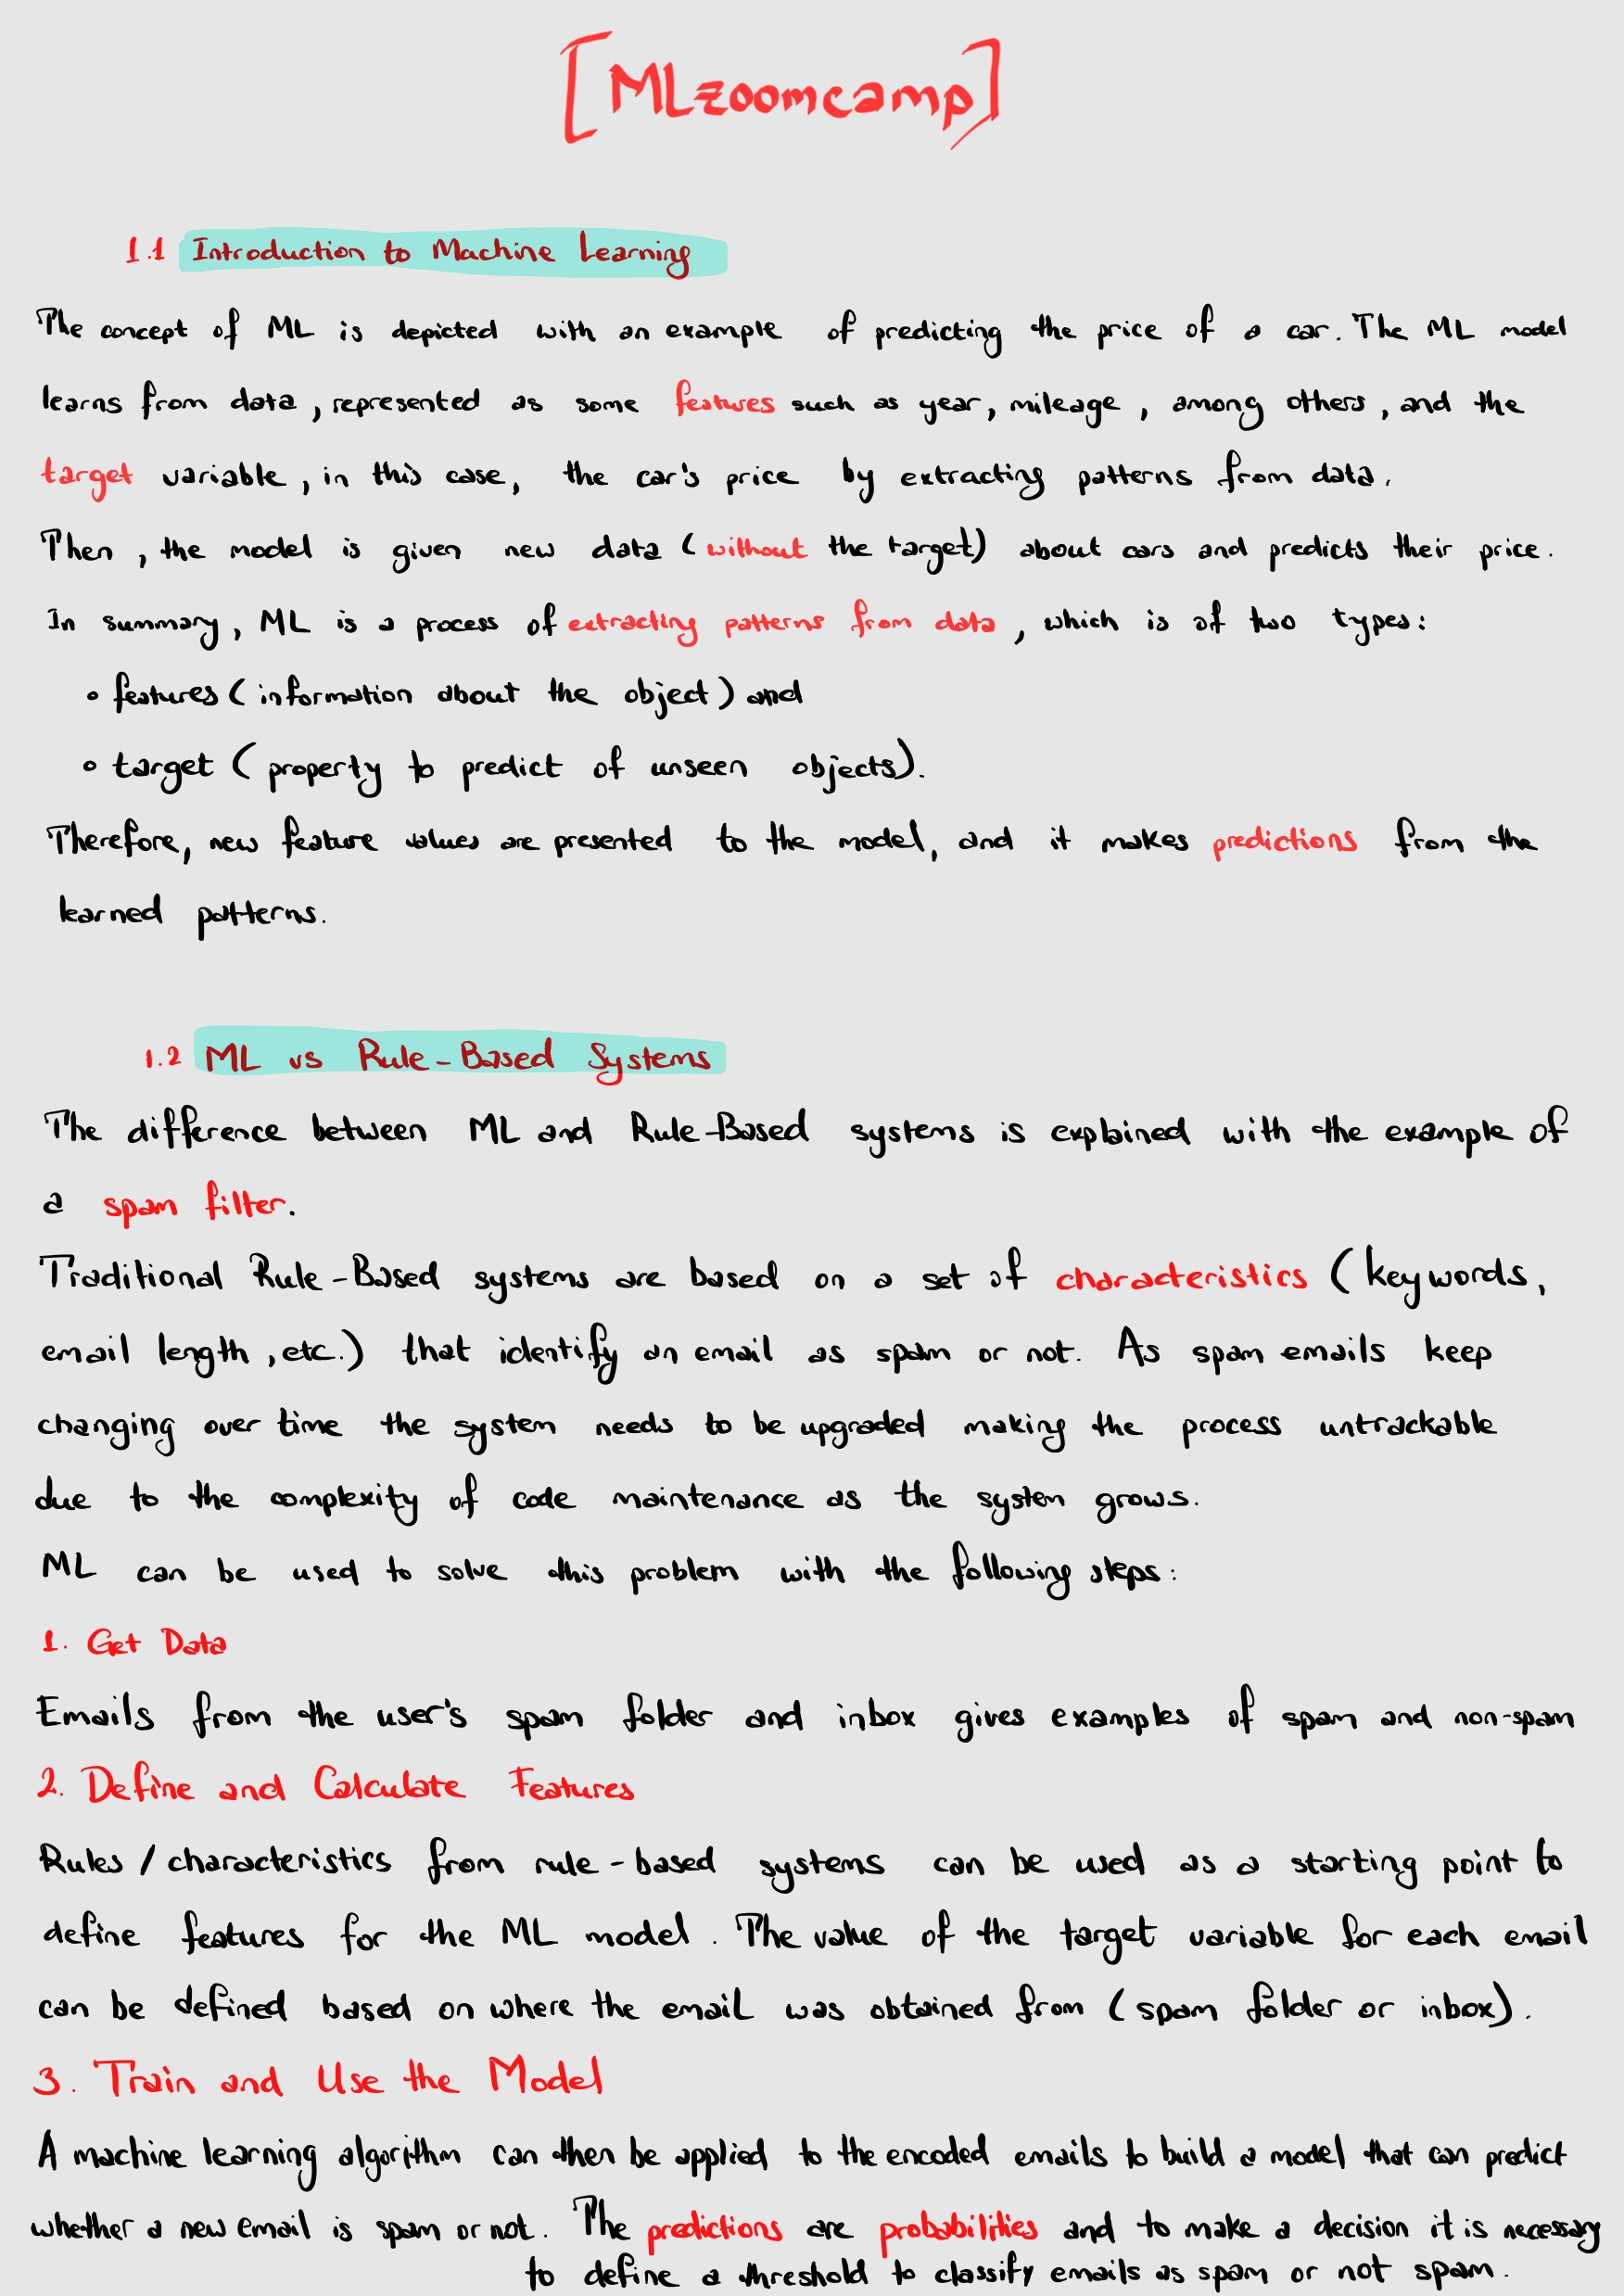 [MLzoomcamp]
1.1 Introduction to Machine Learning
The concept of ML is depicted with an example of predicting the price of a car. The ML model
learns from data, represented as some features such as year, mileage, among others, and the
target variable, in this case, the car's price by extracting patterns from data.
Then, the model is given new data (without the target) about cars and predicts their price.
In summary, ML is a process of extracting patterns from data, which is of two types:
• features (information about the object) and
• target (property to predict of unseen objects).
Therefore, new feature values are presented to the model, and it makes predictions from the
learned patterns.
1.2 ML vs Rule-Based Systems
The difference between ML and Rule-Based systems is explained with the example of
a spam filter.
Traditional Rule-Based systems are based on a set of characteristics (keywords,
email length, etc.) that identify an email as spam or not. As spam emails keep
changing over time the system needs to be upgraded making the process untrackable
due to the complexity of code maintenance as the system grows.
ML can be used to solve this problem with the following steps:
1. Get Data
Emails from the user's spam folder and inbox gives examples of spam and non-spam
2. Define and Calculate Features
Rules / characteristics from rule-based systems can be used as a starting point to
define features for the ML model. The value of the target variable for each email
can be defined based on where the email was obtained from (spam folder or inbox).
3. Train and Use the Model
A machine learning algorithm can then be applied to the encoded emails to build a model that can predict
whether a new email is spam or not. The predictions are probabilities and to make a decision it is necessary
to define a threshold to classify emails as spam or not spam.